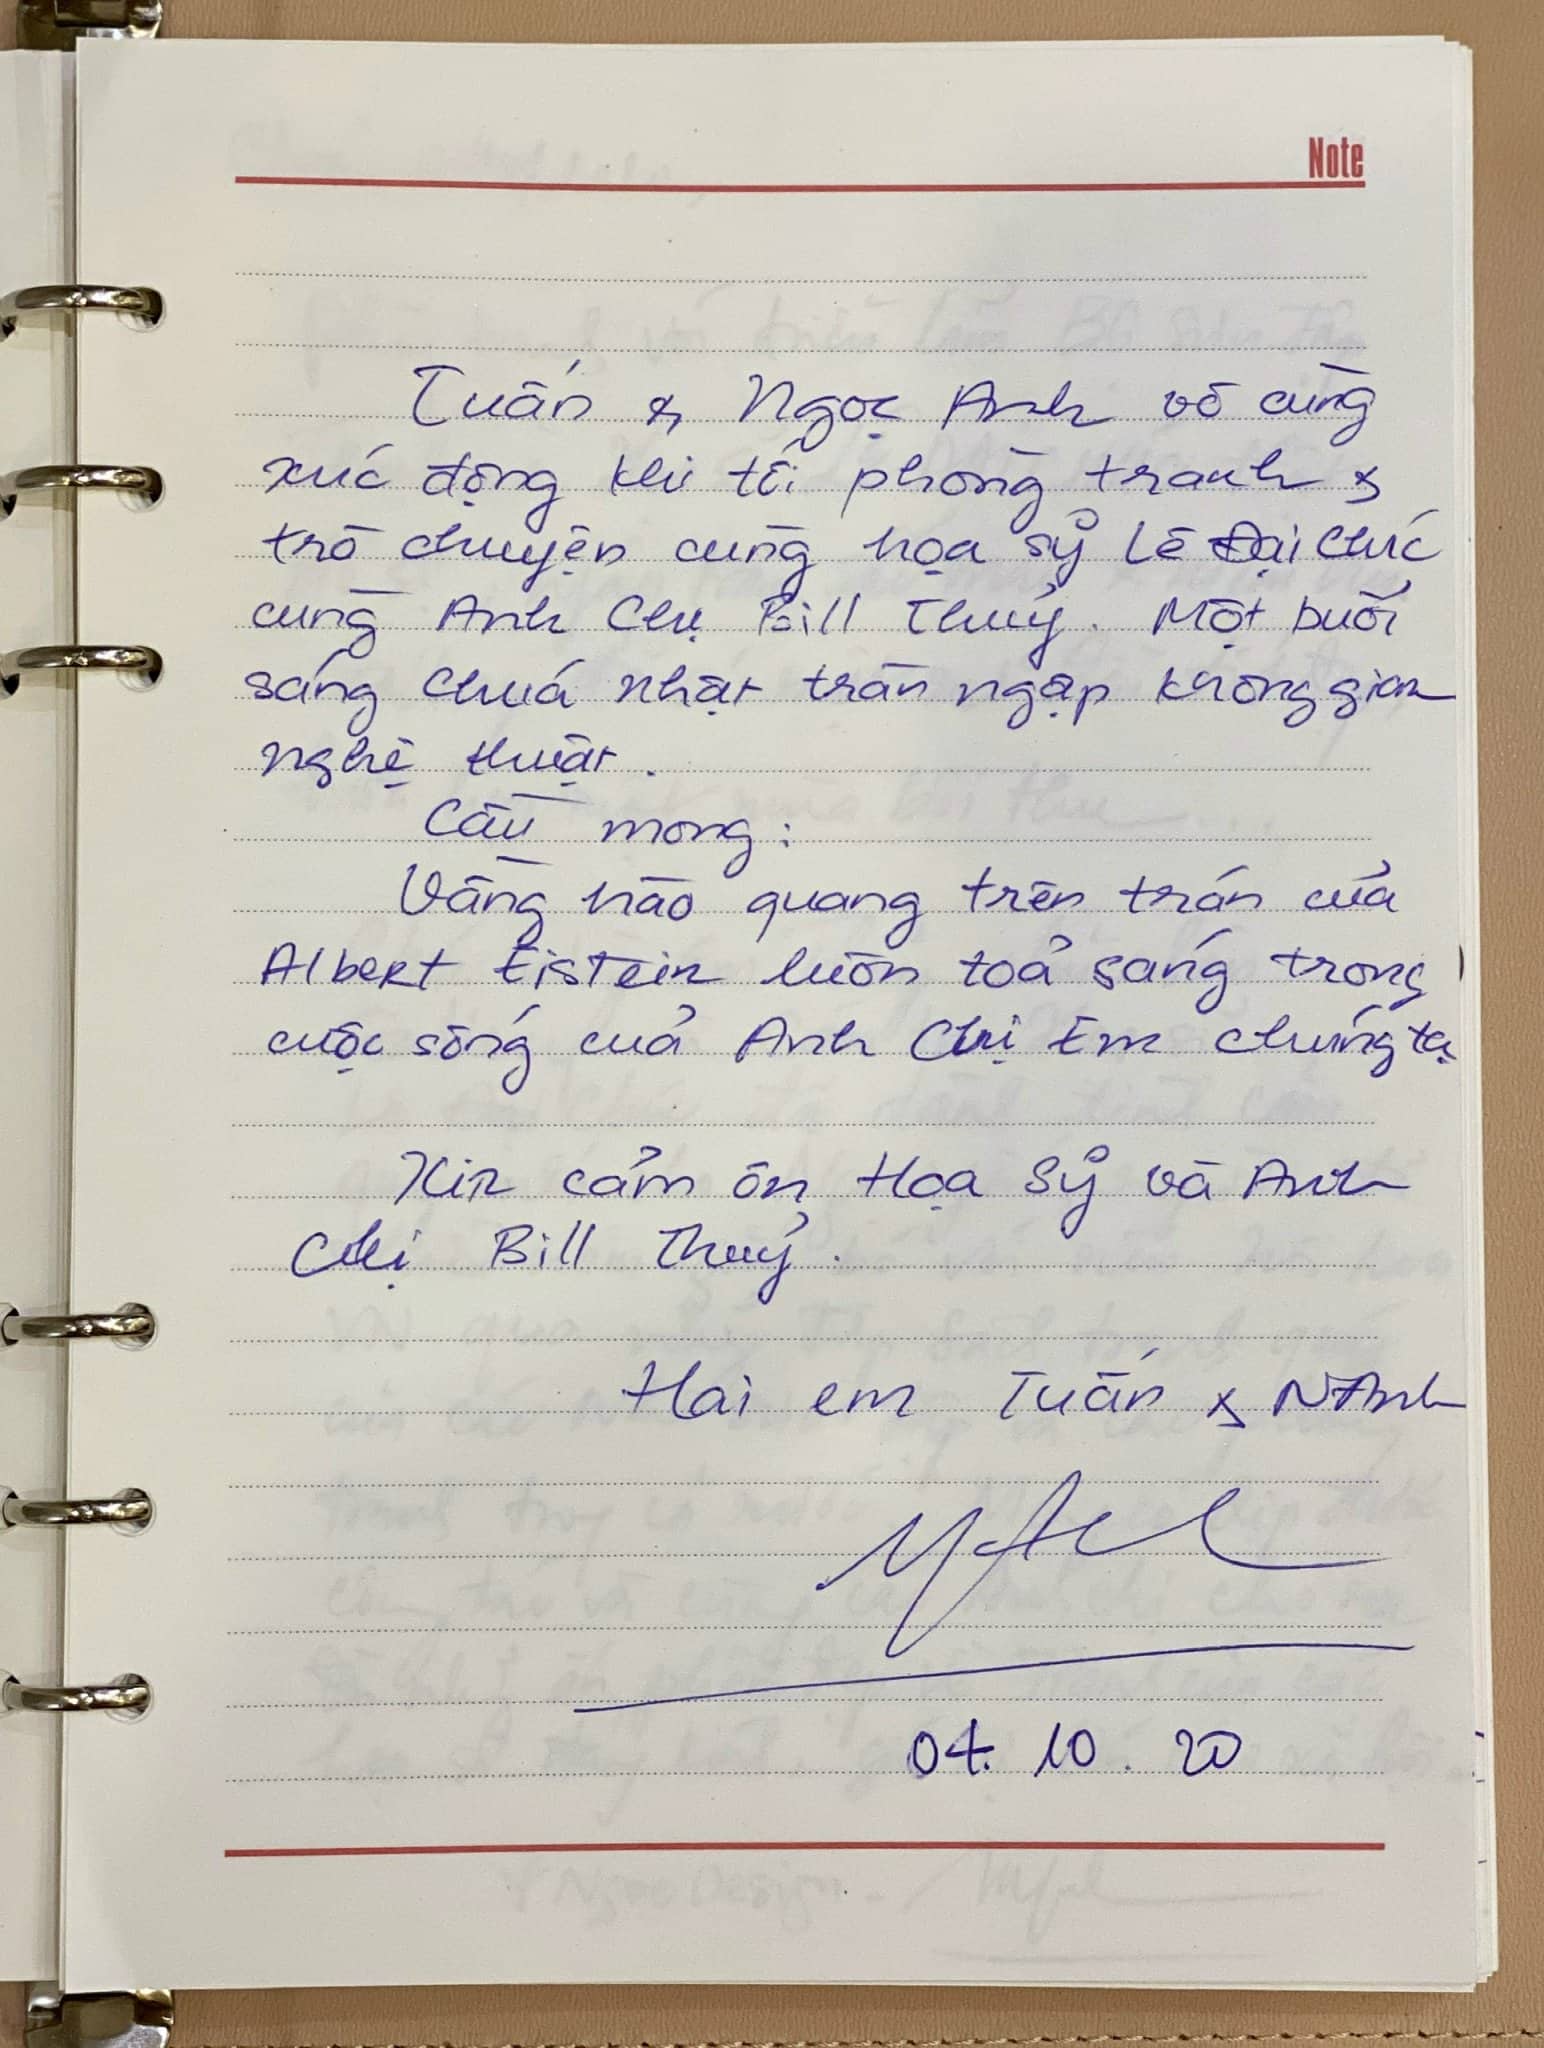 Note
Tuấn & Ngọc Anh vô cùng
xúc động khi tới phòng tranh &
trò chuyện cùng họa sỹ Lê Đại Chúc
cùng Anh Chị Bill Thuỷ. Một buổi
sáng Chuá nhật tràn ngập không gian
nghệ thuật.
Cầu mong:
Vầng hào quang trên trán của
Albert Eistein luôn toả sáng trong
cuộc sống cuả Anh Chị Em chúng ta
Xin cảm ơn Họa Sỹ và Anh
Chị Bill Thuỷ.
Hai em Tuấn & NAnh
04. 10. 20